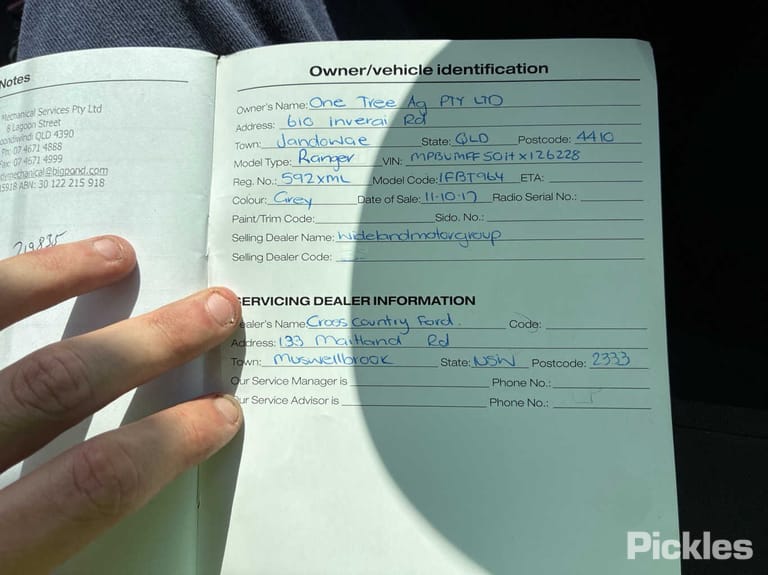 Notes
Mechanical Services Pty Ltd
8 Lagoon Street
Goondiwindi QLD 4390
Ph: 07 4671 4888
Fax: 07 4671 4999
mechanical@bigpond.com
ABN: 30 122 215 918
219835
Owner/vehicle identification
Owner's Name: One Tree Ag PTY LTD
Address: 610 inverai Rd
Town: Jandowae State: QLD Postcode: 4410
Model Type: Ranger VIN: MPBUMFF50HX126228
Reg. No.: 592XML Model Code: 1FBT964 ETA:
Colour: Grey Date of Sale: 11-10-17 Radio Serial No.:
Paint/Trim Code: Sido. No.:
Selling Dealer Name: Widelandmotorgroup
Selling Dealer Code:
SERVICING DEALER INFORMATION
Dealer's Name: Cross Country Ford. Code:
Address: 133 Maitland Rd
Town: Muswellbrook State: NSW Postcode: 2333
Our Service Manager is Phone No.:
Our Service Advisor is Phone No.:
Pickles